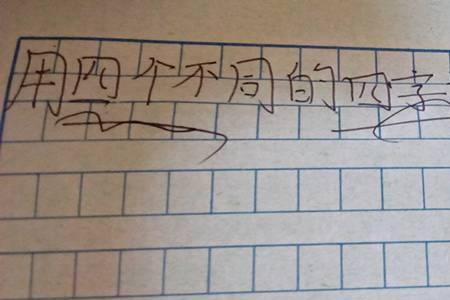 用四个不同的四字